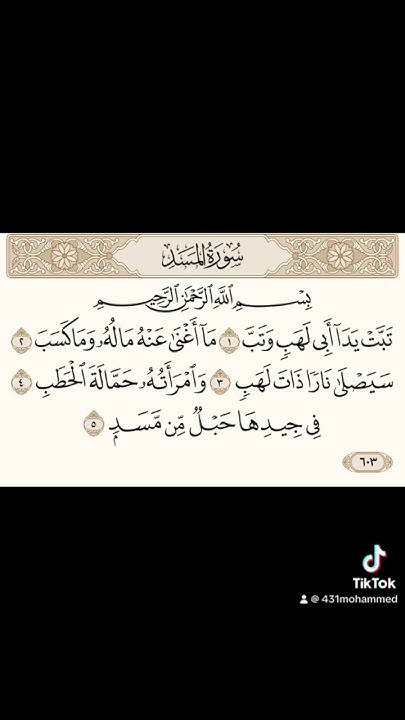 سُورَةُ المَسَدِ
بِسْمِ ٱللَّهِ ٱلرَّحْمَٰنِ ٱلرَّحِيمِ
تَبَّتْ يَدَآ أَبِى لَهَبٍ وَتَبَّ ١ مَآ أَغْنَىٰ عَنْهُ مَالُهُۥ وَمَا كَسَبَ ٢
سَيَصْلَىٰ نَارًا ذَاتَ لَهَبٍ ٣ وَٱمْرَأَتُهُۥ حَمَّالَةَ ٱلْحَطَبِ ٤
فِى جِيدِهَا حَبْلٌ مِّن مَّسَدٍۭ ٥
٦٠٣
TikTok
@ 431mohammed